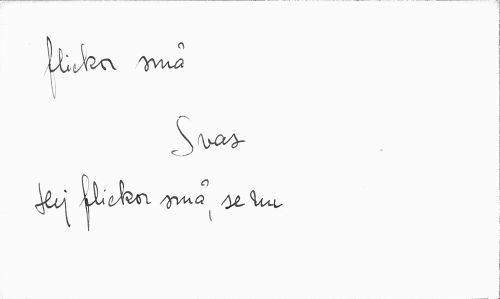 flickor små
Svas
Hej flickor små, se nu